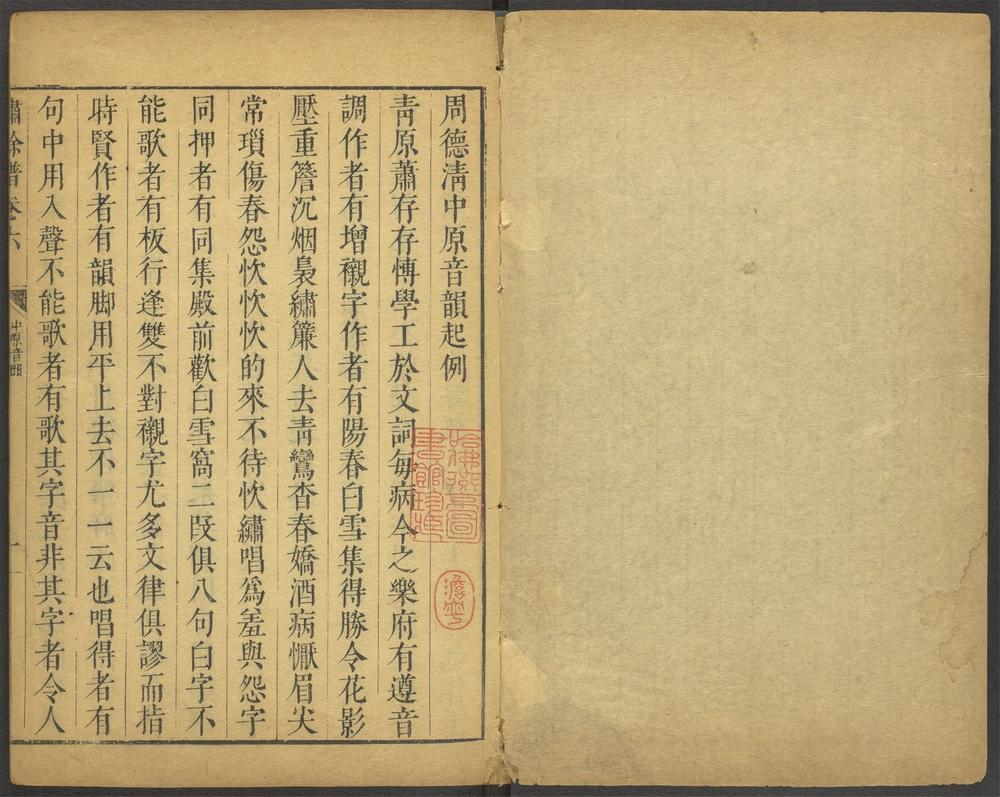 周德淸中原音韻起例
靑原蕭存存博學工於文詞每病今之樂府有遵音
調作者有增襯字作者有陽春白雪集得勝令花影
壓重簷沉烟裊繡簾人去靑鸞杳春嬌酒病懨眉尖
常瑣傷春怨忺忺忺的來不待忺繡唱爲羞與怨字
同押者有同集殿前歡白雪窩二段俱八句白字不
能歌者有板行逢雙不對襯字尤多文律俱謬而指
時賢作者有韻脚用平上去不一一云也唱得者有
句中用入聲不能歌者有歌其字音非其字者令人
嘯餘譜卷六
中原音韻
一
哈佛燕京圖書館珍藏